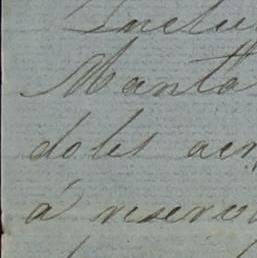 Inclu
Manta
doles acer
á reserv